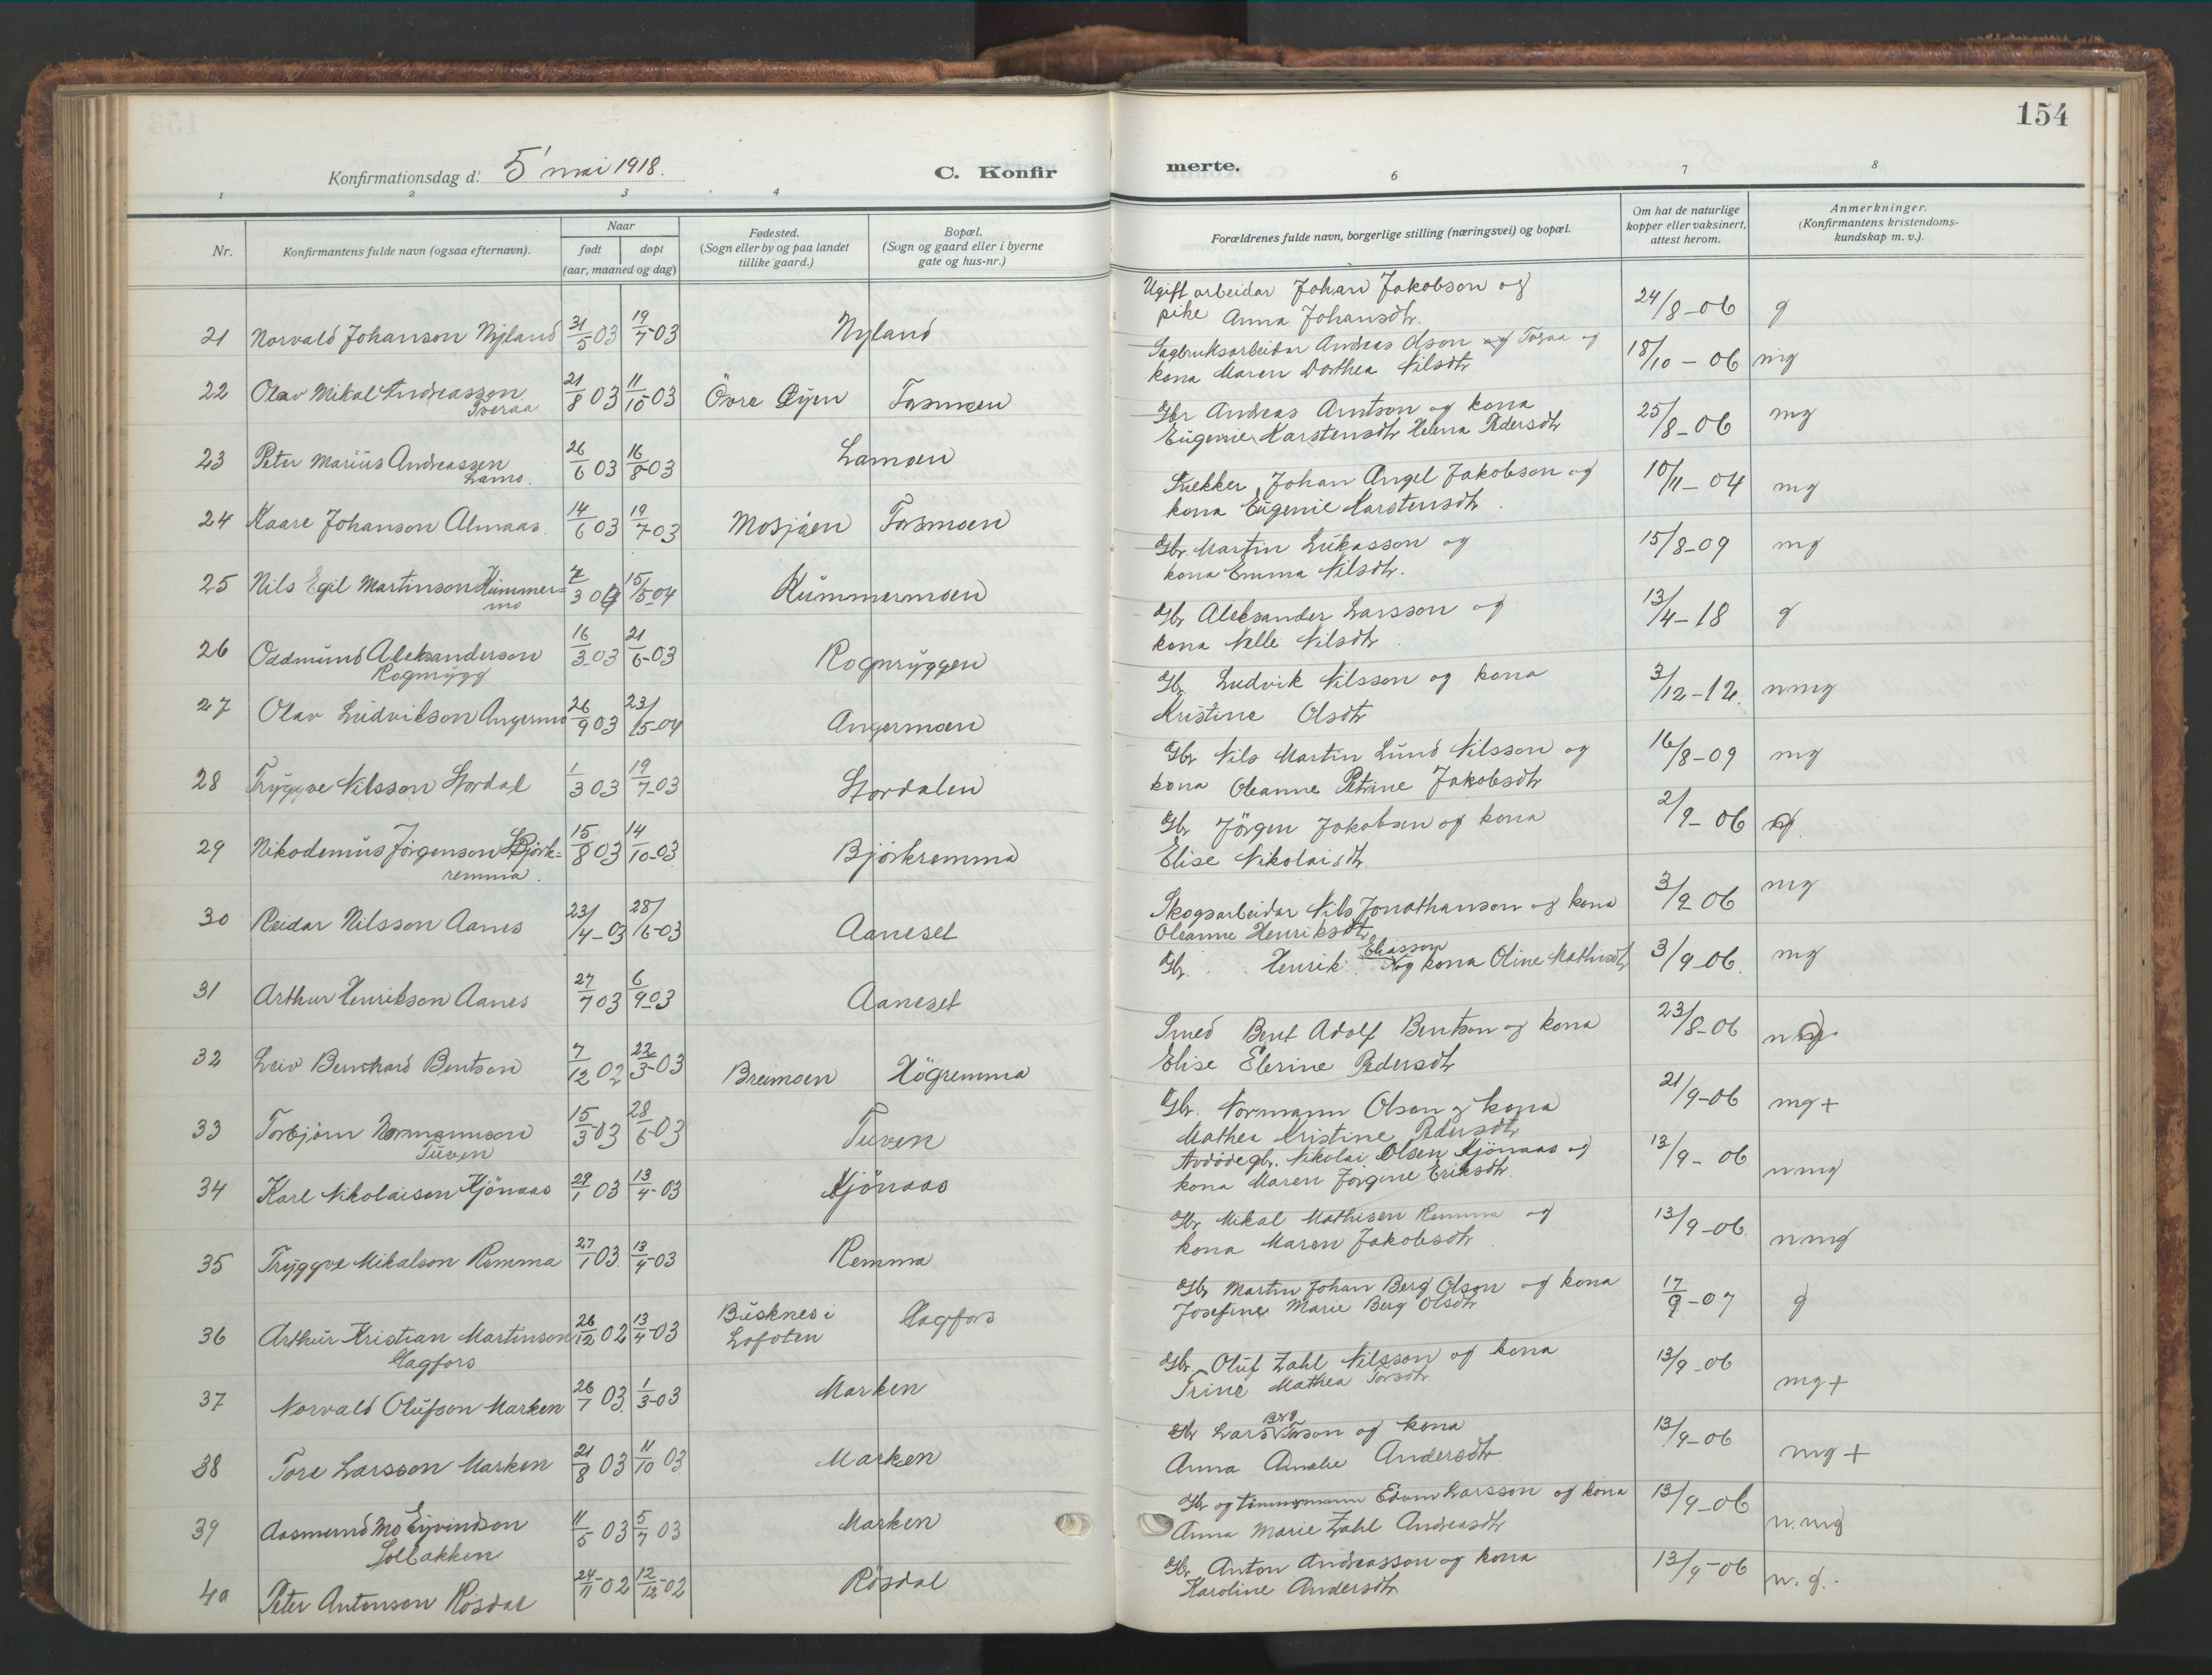 154
Konfirmationsdag d: 5' mai 1918.
C. Konfir
merte.
1 2 3 4 6 7 8
Nr. Konfirmantens fulde navn (ogsaa efternavn). Naar født døpt (aar, maaned og dag) Fødested. (Sogn eller by og paa landet tillike gaard.) Bopæl. (Sogn og gaard eller i byerne gate og hus-nr.) Forældrenes fulde navn, borgerlige stilling (næringsvei) og bopæl. Om hat de naturlige kopper eller vaksinert, attest herom. Anmerkninger. (Konfirmantens kristendoms- kundskap m. v.).
21 Norvald Johanson Nyland 31/5 03 19/7-03 Nyland
Ugift arbeidar Johan Jakobson og 24/8-06 g
pike Anna Johansdtr.
22 Olav Mikal Andreasson 21/8 03 11/10-03 Övre Öyen Forsmoen
Tveraa
Sagbruksarbeidar Andreas Olson og 18/10-06 mg
kona Maren Dorthea Nilsdtr
23 Peter Marius Andreassen 26/6 03 16/8-03 Lamoen
Lamo.
Gbr Andreas Arntson og kona 25/8-06 mg
Eugenie Karstensdtr Helena Pedersdtr
24 Kaare Johanson Almaas 14/6 03 19/7-03 Mosjöen Forsmoen
Snekker Johan Angel Jakobson og 10/11-04 mg
kona Eugenie Karstensdtr.
25 Nils Egil Martinson Kummer= 7/3 04 15/5-04 Kummermoen
mo
Gbr. Martin Lukasson og 15/8-09 mg
kona Emma Nilsdtr.
26 Oddmund Aleksanderson 16/3-03 21/6-03 Rognryggen
Rognrygg
Gbr Aleksander Larsson og 13/4-18 g
kona Nelle Nilsdtr.
27 Olav Ludvikson Angermo 26/9 03 23/5-04 Angermoen
Gbr Ludvik Nilsson og kona 3/12-12. nmg
Kristine Olsdtr
28 Tryggve Nilsson Stordal 1/3 03 19/7-03 Stordalen
Gbr Nils Martin Lund Nilsson og 16/8-09 mg
kona Oleanne Petrine Jakobsdtr
29 Nikodemus Jörgenson Björk= 15/8 03 14/10-03 Björkremma
remma.
Gbr Jörgen Jakobsen og kona 2/9-06 g.
Elise Nikolaisdtr.
30 Reidar Nilsson Aanes 23/4-03 28/6-03 Aaneset
Skogsarbeidar Nils Jonathanson og kona 3/9 06 mg
Oleanne Henriksdtr
31 Arthur Henrikson Aanes 27/7 03 6/9-03 Aaneset
Gbr. Henrik Eliasson og kona Oline Mathisdtr 3/9-06. mg
32 Leiv Bernhard Bentson 7/12 02 22/3-03 Breimoen Högremma
Smed Bent Adolf Bentson og kona 23/8-06 ng
Elise Elerine Pedersdtr
33 Torbjörn Normannson 15/3-03 28/6-03 Tuven
Tuven
Gbr. Normann Olson og kona 21/9-06 mg+
Mathea Kristine Pedersdtr
34 Karl Nikolaisen Kjönaas 29/1 03 13/4-03 Kjönaas
Avdöde gbr. Nikolai Olsen Kjönaas og 13/9-06 nmg
kona Maren Jörgine Eriksdtr.
35 Tryggve Mikalson Remma 27/1 03. 13/4-03 Remma
Gbr Mikal Mathisen Remma og 13/9-06. nmg
kona Maren Jakobsdtr.
36 Arthur Kristian Martinson 26/12 02 13/4-03 Buksnes i Lofoten Hagfors
Hagfors
Gbr Martin Johan Berg Olson og kona 17/9-07 g
Josefine Marie Berg Olsdtr
37 Norvald Olufson Marken 26/7 03. 1/3-03 Marken
Gbr. Oluf Zahl Nilsson og kona 13/9-06 mg+
Trine Mathea Torsdtr
38 Tore Larsson Marken 21/8 03 11/10 03 Marken
Gbr Lars Torson og kona 13/9-06 mg+
Anna Amalie Andersdtr
39 Aasmund Mo Eyvindson 11/5 03 5/7 03 Marken
Solbakken
Gbr og tömmermann Edvin Larsson og kona 13/9-06 n.mg
Anna Marie Zahl Andreasdtr
40 Peter Antonson Rösdal 24/11-02 12/12-02 Rösdal
Gbr. Anton Andreasson og kona 13/9-06 n.g.
Karoline Andersdtr